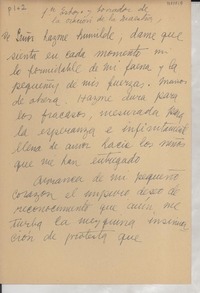 p 1-2
Esbozo y borrador de
la oración de la maestra
Señor hazme humilde; dame que
sienta en cada momento
lo formidable de mi faena y la
pequeñez de mis fuerzas.
de ahora. Hazme dura para
los fracasos, mesurada para
la esperanza e
llena de amor hacia los niños
que me han entregado
Arranca de mi pequeño
corazón el impuro deseo de
reconocimiento que aún me
turba la mezquina insinua-
ción de protesta que